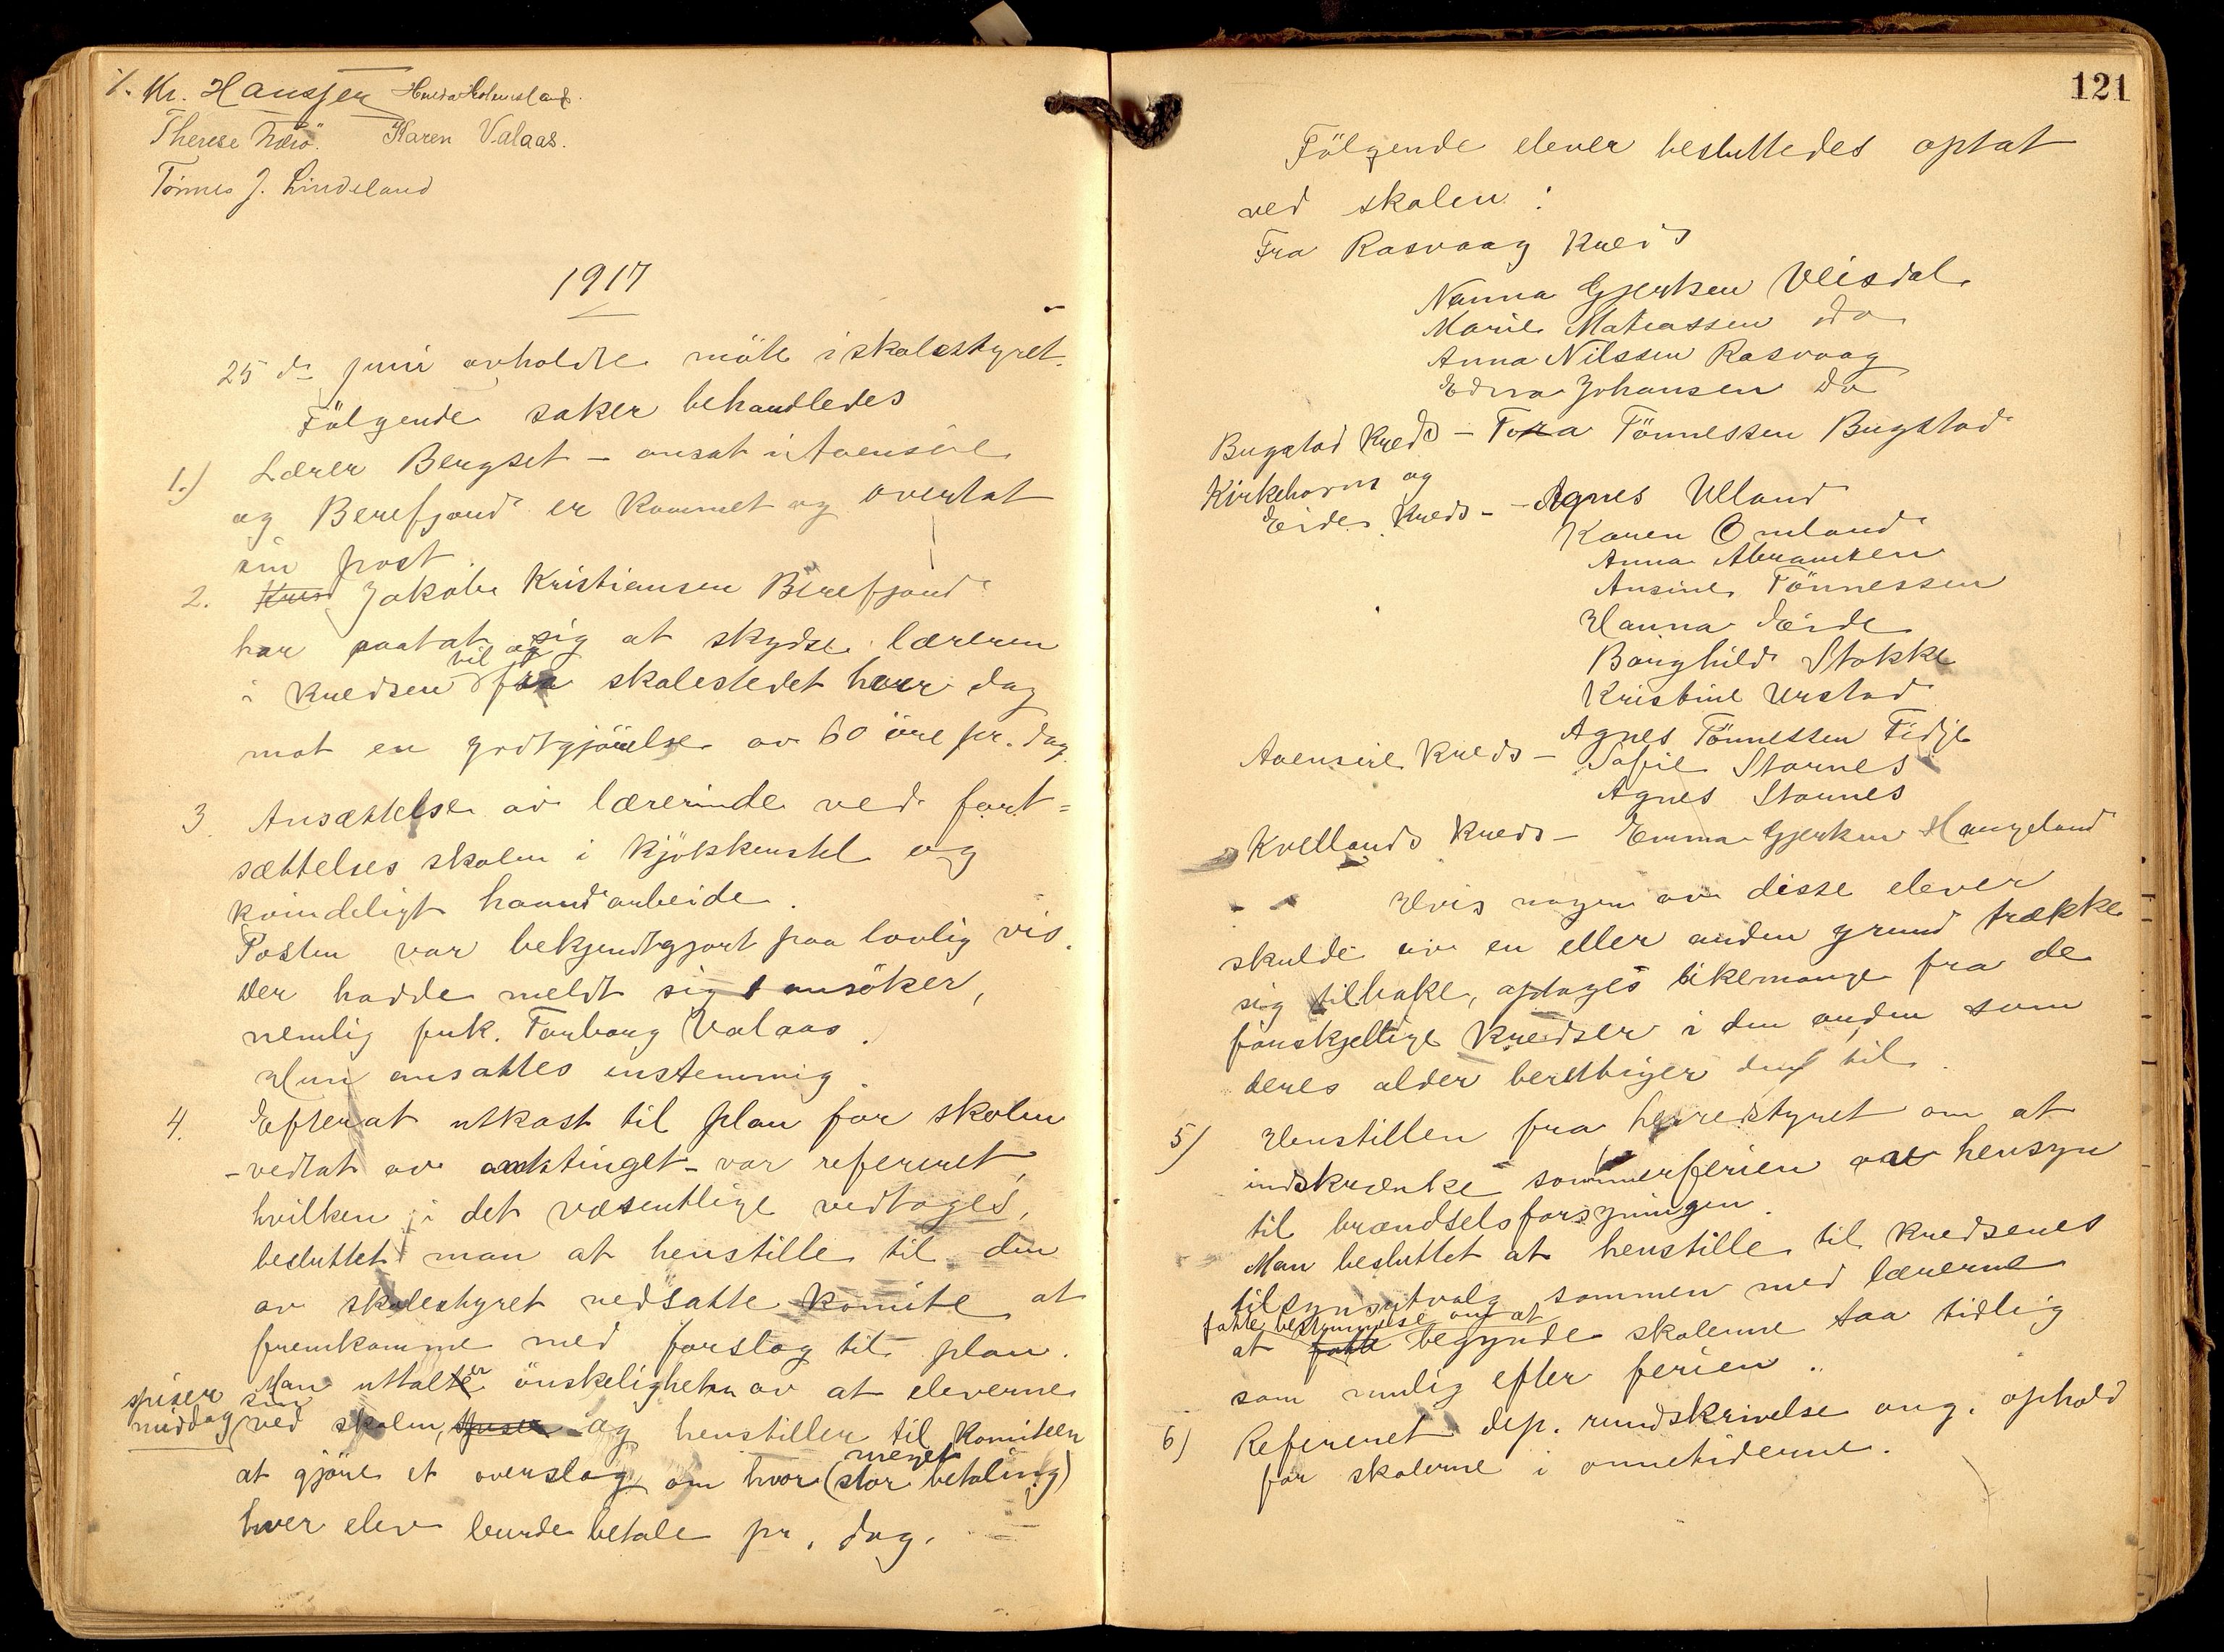 Kr. Hanssen
Therese Karen Valaas.
Tönnes J. Lindeland
1917
25 de juni avholdte möte i skolestyret.
Fölgende saker behandledes
1.) Lærer Bergset – ansat i Avensire
og Berefjord er kommet og overtat
sin post.
2. Jakob Kristiansen Berefjord
har paatat sig at skydse læreren
i kredsen til og fra skolestedet hver dag
mot en godtgjörelse av 60 öre pr. dag.
3. Ansættelse av lærerinde ved fort=
sættelses skolen i kjökkenstel og
kvindeligt haandarbeide.
Posten var bekjendtgjort paa lovlig vis.
Der hadde meldt sig 1 ansöker,
nemlig frk. Torborg Valaas.
Hun ansattes enstemmig.
4. Efterat utkast til plan for skolen
– vedtat av amtstinget – var referert,
hvilken i det væsentlige vedtoges,
besluttet man at henstille til den
av skolestyret nedsatte komite at
fremkomme med forslag til plan.
Man uttalte önskeligheten av at eleverne
spiser sin
middag ved skolen, spiser og henstiller til komiteen
at gjöre et overslag om hvor meget (stor betaling)
hver elev burde betale pr. dag.
121
Fölgende elever besluttedes optat
ved skolen:
Fra Rasvaag Kreds
Nanna Gjertsen Veisdal
Marie Mathiassen do
Anna Nilssen Rasvaag
Edna Johansen do
Bugstad Kreds – Tora Tönnessen Bugstad
Kirkehavns og
Eide Kreds – Agnes Ulland
Karen Omland
Anna Abramsen
Ansine Tönnessen
Hanna Eide
Borghild Stokke
Kristine Urstad
Agnes Tönnessen Fidje
Avensire Kreds – Sofie Stornes
Agnes Stornes
Kvellands Kreds – Emma Gjertsen Haugeland
Hvis nogen av disse elever
skulde av en eller anden grund trække
sig tilbake, optages likemange fra de
forskjellige kredser i den orden som
deres alder berettiger dem til.
5) Henstillen fra herredstyret om at
indskrænke sommerferien av hensyn
til brændselsforsyningen.
Man besluttet at henstille til kredsenes
tilsynsutvalg sammen med lærerne
fatte bestemmelse om at
at fatte begynde skolerne saa tidlig
som mulig efter ferien.
6) Referert dep. rundskrivelse ang. ophold
for skolerne i onnetiderne.